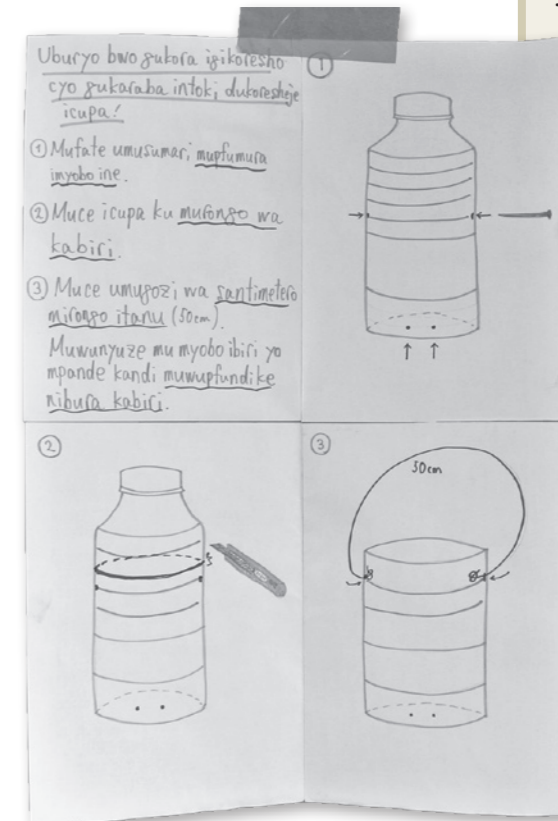 Uburyo bwo gukora igikoresho
cyo gukaraba intoki dukoresheje
icupa!
① Mufate umusumari mupfumura
imyobo ine.
② Muce icupa ku murongo wa
kabiri.
③ Muce umugozi wa santimetero
mirongo itanu (50cm).
Muwunyuze mu myobo ibiri yo
mpande kandi muwupfundike
nibura kabiri.
①
②
③
50cm